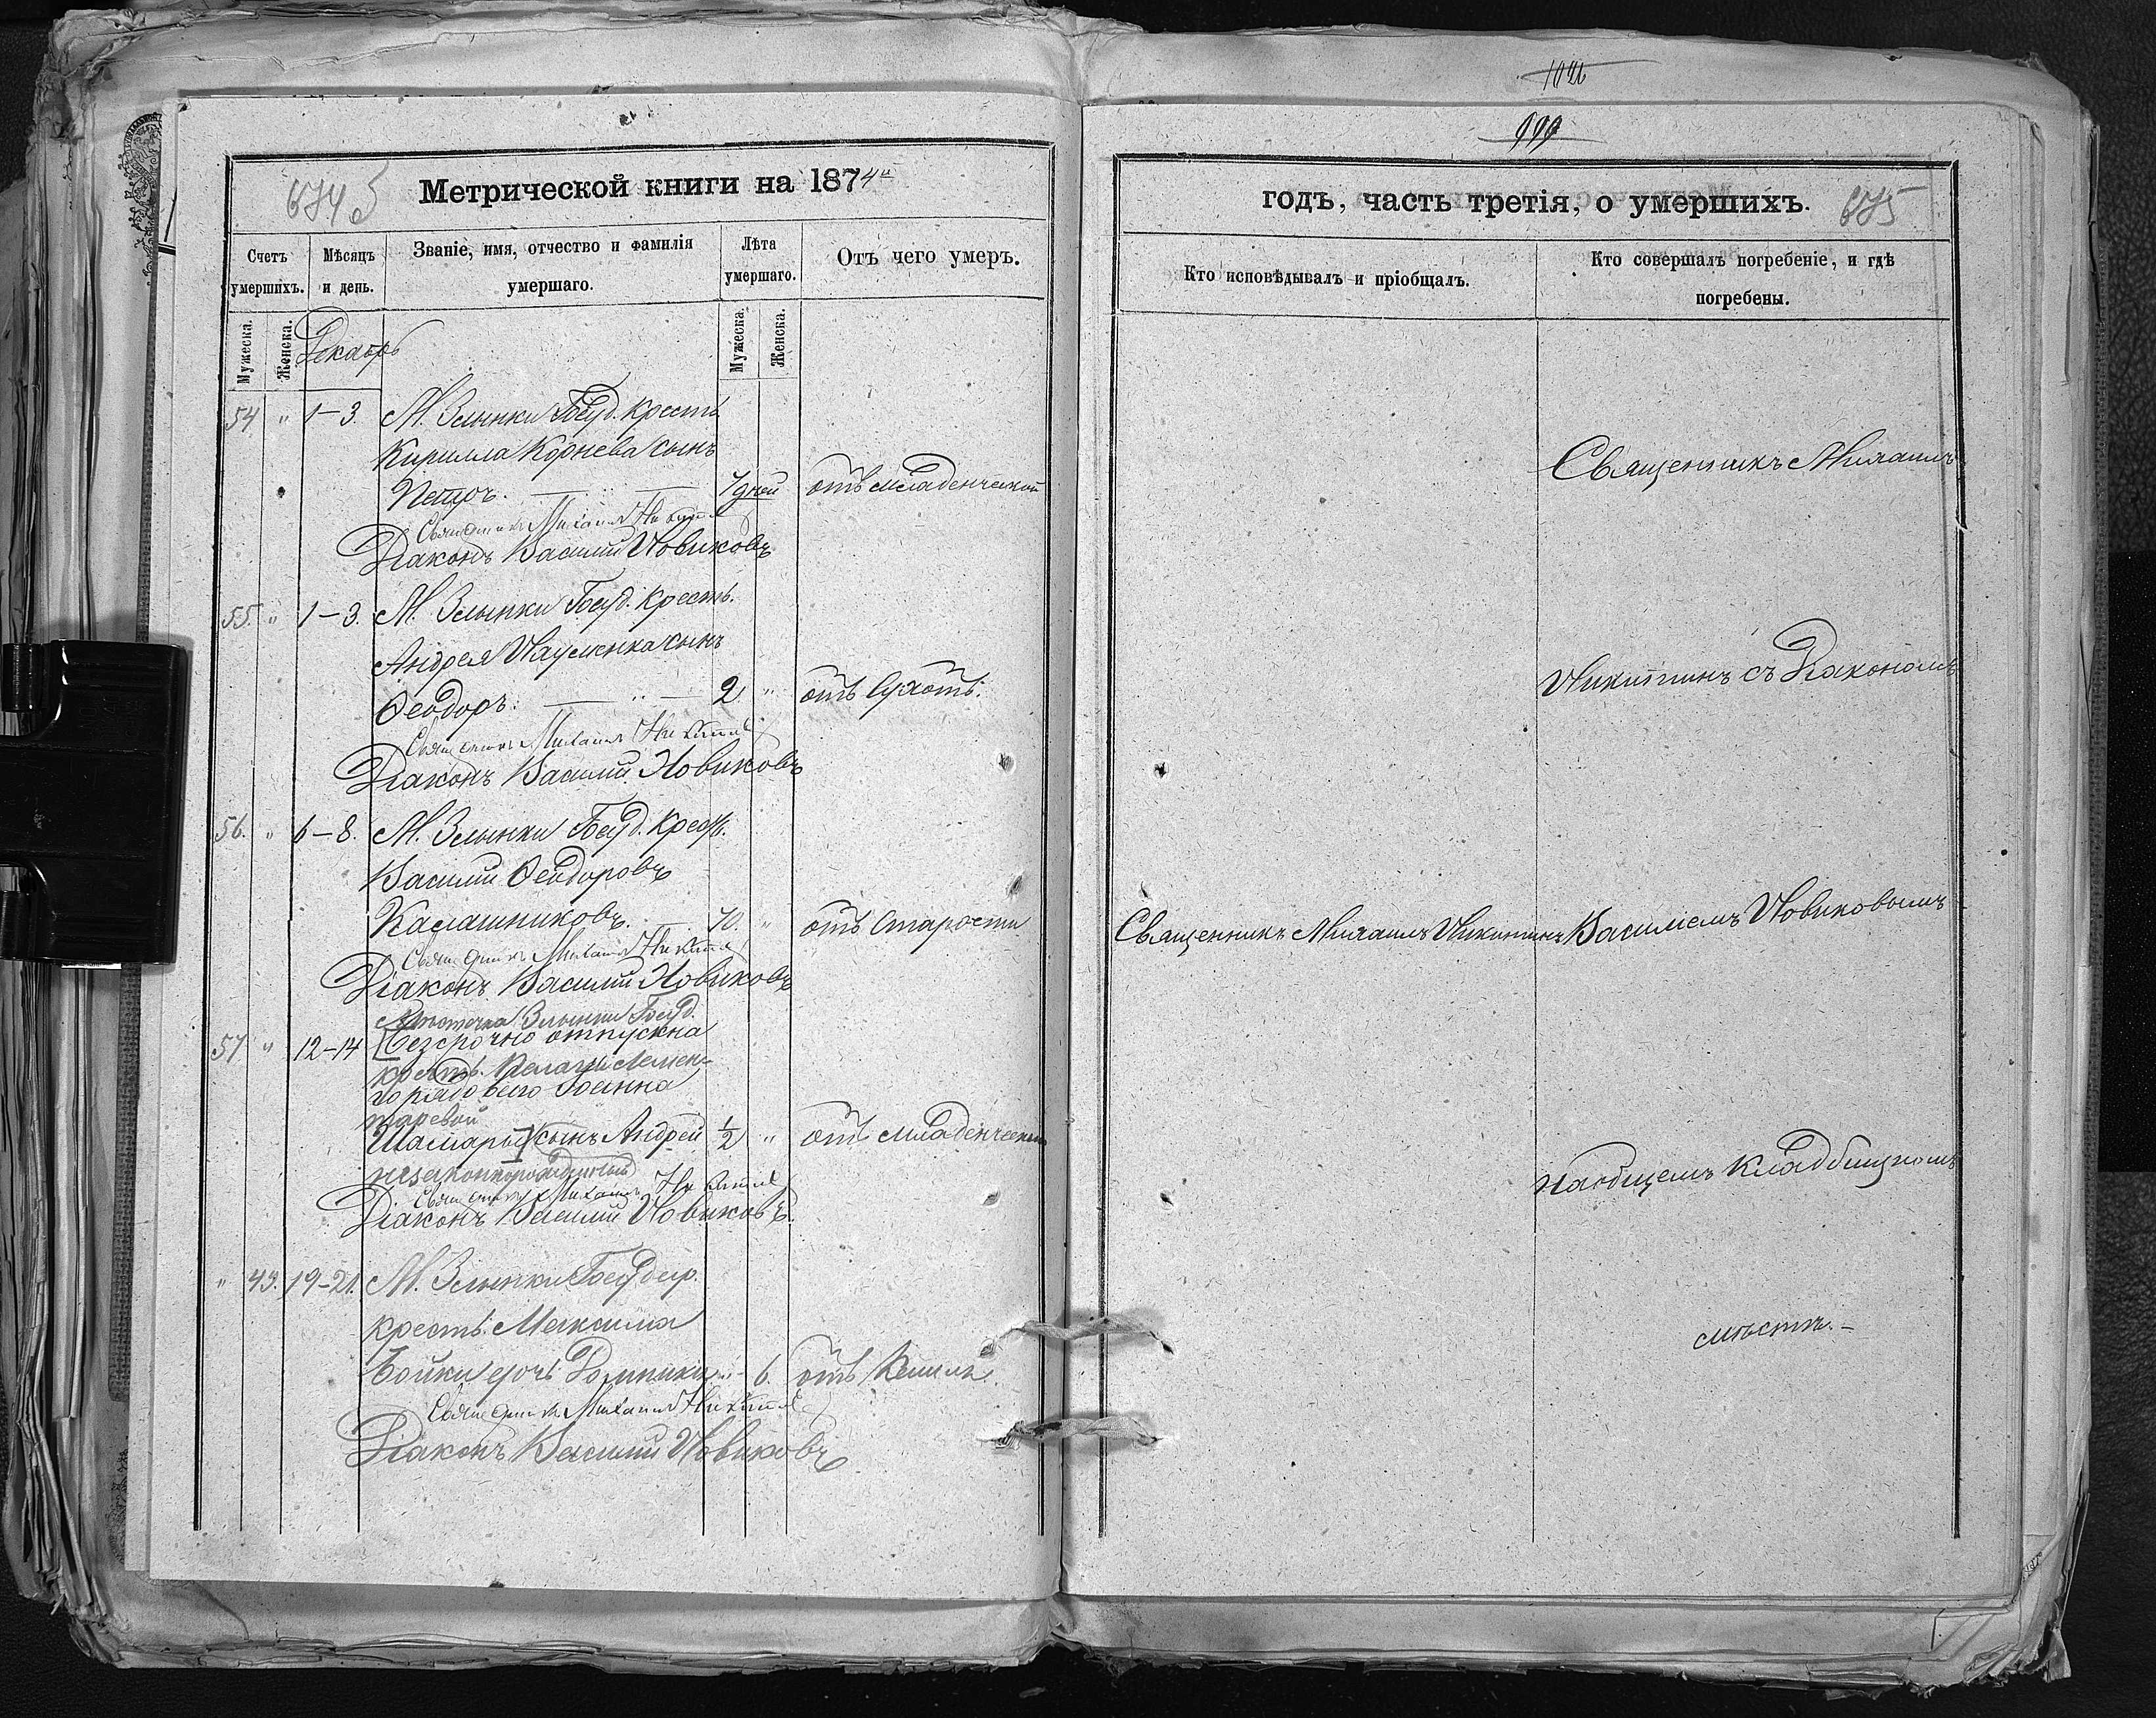 1026
999
674 об
Метрической книги на 1874й
Счетъ умершихъ.
Мѣсяцъ и день.
Званіе, имя, отчество и фамилія умершаго.
Лѣта умершаго.
Отъ чего умеръ.
Мужеска.
Женска.
Мужеска.
Женска.
Декабрь
54 " 1–3. М. Злынки Госуд. крестъ.
Кирилла Корнева сынъ
Петръ. 7 дней отъ младенческой
Священникъ Михаилъ Никитинъ
Діаконъ Василій Новиковъ
55. " 1–3. М. Злынки Госуд. крестъ.
Андрея Науменка сынъ
Ѳеодоръ. 2 " отъ сухотъ.
Священникъ Михаилъ Никитинъ
Діаконъ Василій Новиковъ
56. " 6–8. М. Злынки Госуд. крест.
Василій Ѳеодоровъ
Калашниковъ. 70. " отъ старости
Священникъ Михаилъ Никитинъ
Діаконъ Василій Новиковъ
Мѣстечка Злынки Госуд.
57 " 12–14 [безсрочно отпускна
крестъ. Пелагіи
го рядоваго Іоанна
Шамары] сынъ Андрей ½ " отъ младенческой
незаконнорожденный
Священникъ Михаилъ Никитинъ
Діаконъ Василій Новиковъ.
" 49. 19–21. М. Злынки Государ.
крестъ. Максима
Бойки дочь Домника " 6. отъ кашля.
Священникъ Михаилъ Никитинъ
Діаконъ Василій Новиковъ
годъ, часть третія, о умершихъ.
675
Кто исповѣдывалъ и пріобщалъ.
Кто совершалъ погребеніе, и гдѣ погребены.
Священникъ Михаилъ
Никитинъ съ Діакономъ
Священникъ Михаилъ Никитинъ
Василіемъ Новиковымъ
на общемъ кладбищномъ
мѣстѣ.–